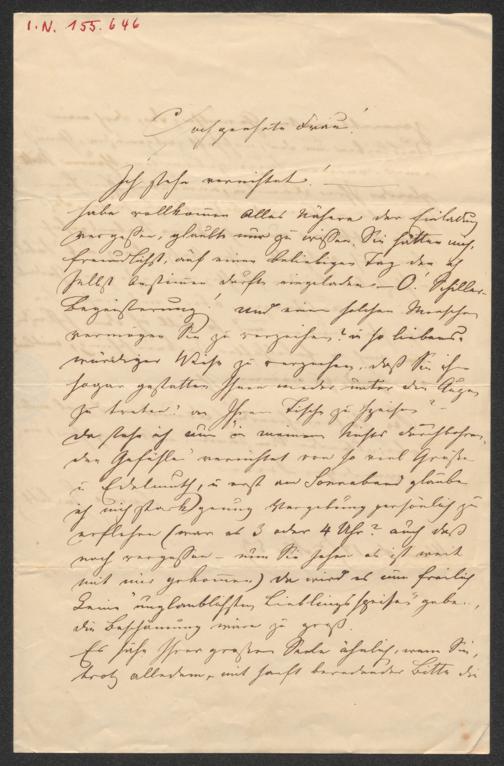 I.N. 155.646
Hochgeehrte Frau!
Ich stehe vernichtet!
habe vollkommen alles Nähere der Einladung
vergessen, glaubte nur zu wissen, Sie hätten mich
freundlichst, auf einen beliebigen Tag den ich
selbst bestimmen dürfte eingeladen – O! Schiller-
Begeisterung! und einem solchen Menschen
vermögen Sie zu verzeihen? in so liebens-
würdiger Weise zu verzeihen, daß Sie ihm
sogar gestatten Ihnen wieder unter die Augen
zu treten! an Ihrem Tische zu speisen! –
Da stehe ich nun in meinem Nichts durchbohren-
den Gefühle vernichtet von so viel Größe
u Edelmuth, u erst am Sonnabend glaube
ich mich stark genug Vergebung persönlich zu
erflehen (war es 3 oder 4 Uhr? auch das
noch vergessen – nun Sie sehen es ist weit
mit mir gekommen) da wird es nun freilich
keine "unglaublichsten Lieblingsspeisen" geben,
die Beschämung wäre zu groß.
Es sähe Ihrer großen Seele ähnlich, wenn Sie,
trotz alledem, mit sanft beredender Bitte die